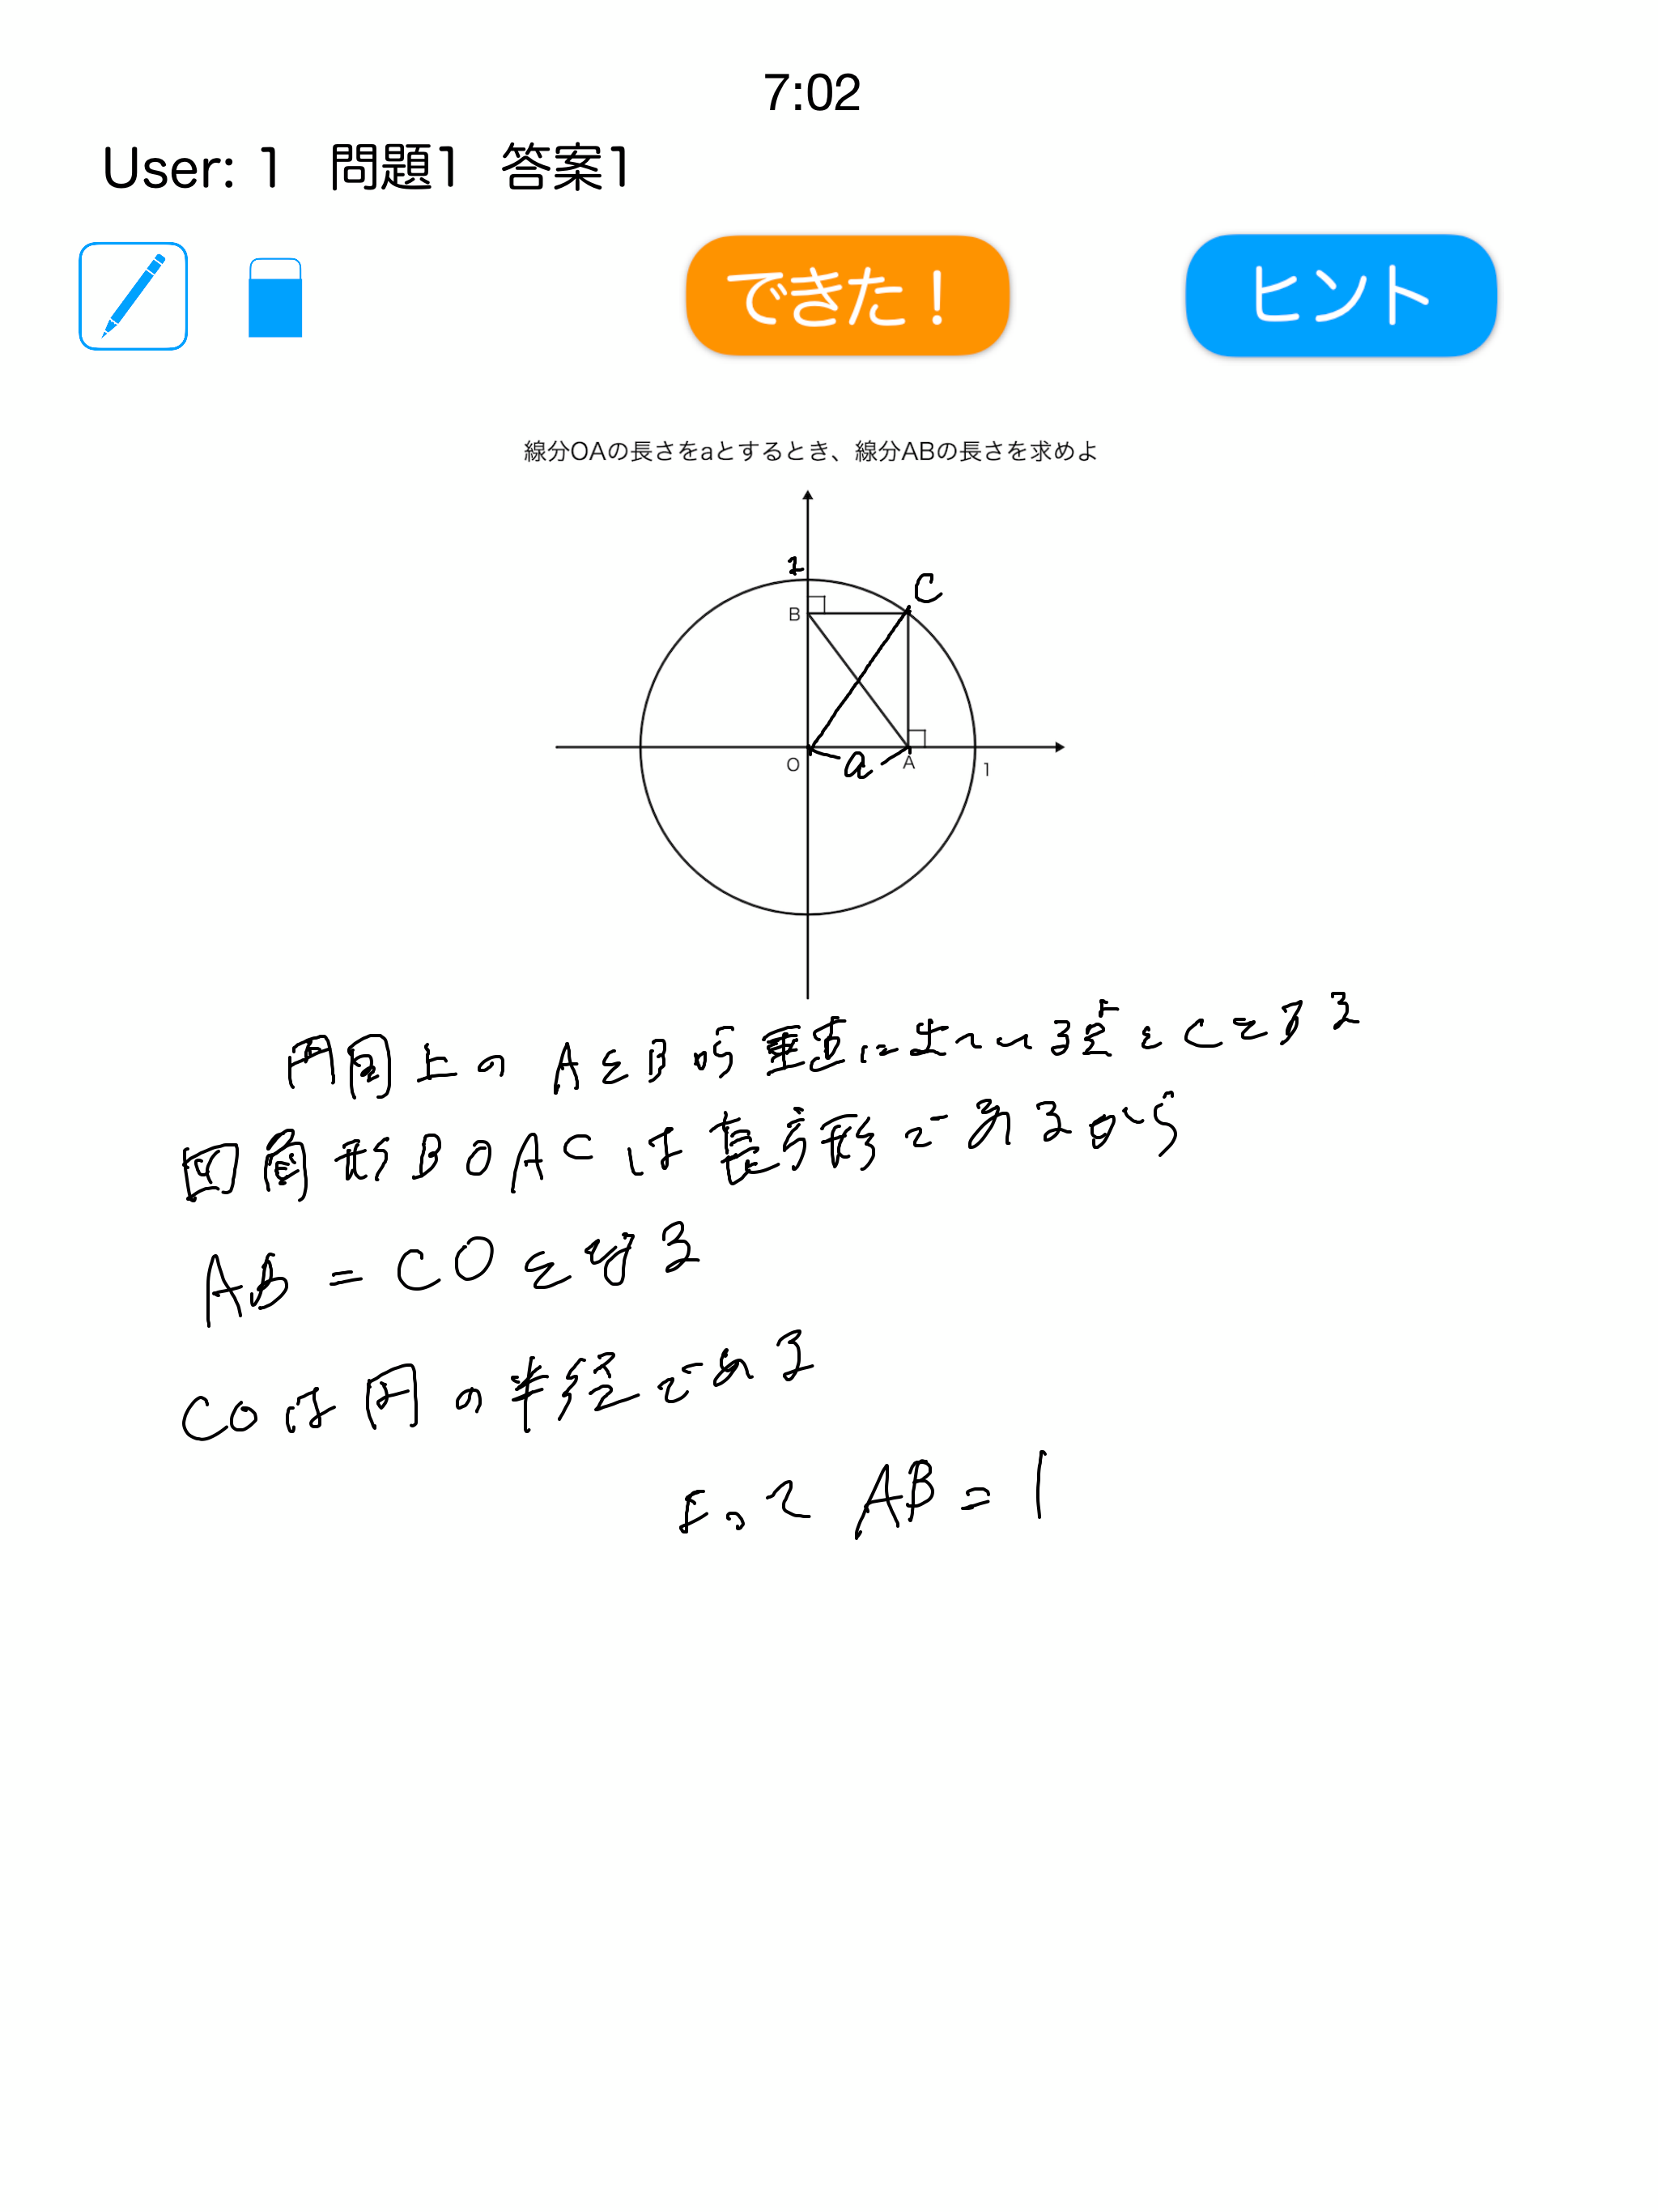 7:02
User: 1 問題1 答案1
できた！ ヒント
線分OAの長さをaとするとき、線分ABの長さを求めよ
1
C
B
O
a
A
1
円周上のAとBから垂直に出ている点をCとする
四角形BOACは長方形であるから
AB=COとなる
COは円の半径である
よってAB=1